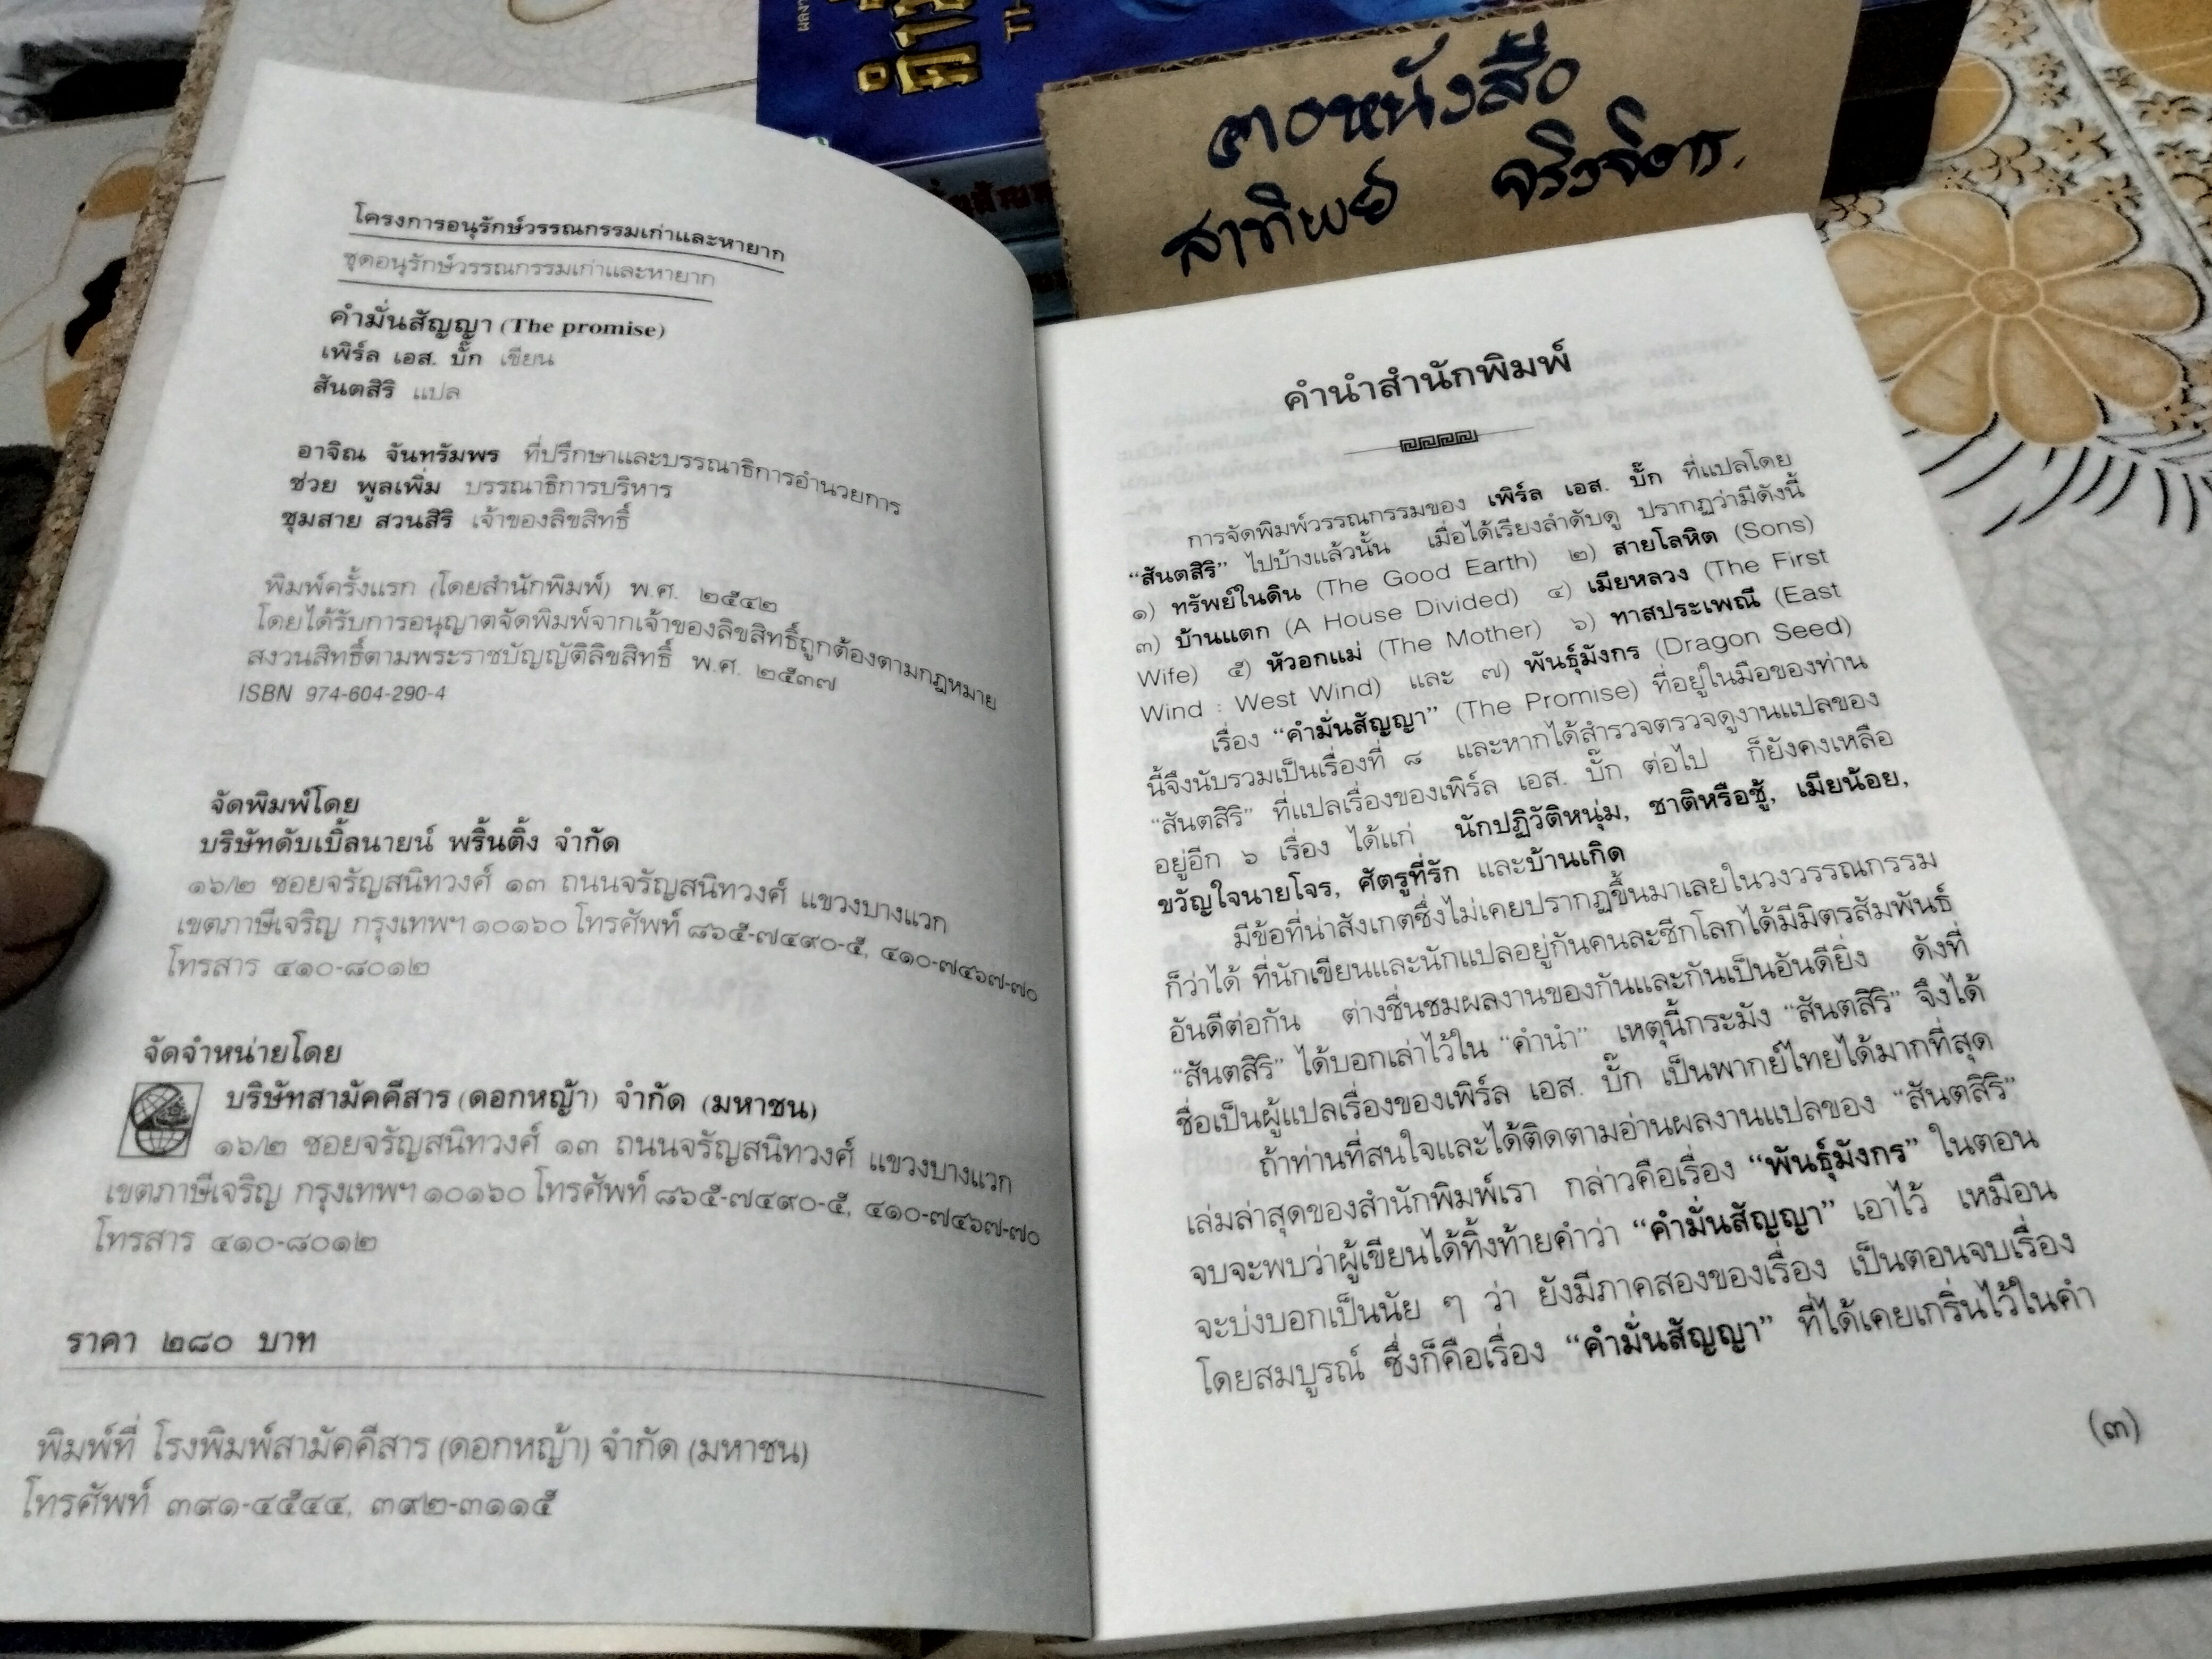 ตาหนังสือ
สาทิพย์ จริงจิตร.
โครงการอนุรักษ์วรรณกรรมเก่าและหายาก
ชุดอนุรักษ์วรรณกรรมเก่าและหายาก
คำมั่นสัญญา (The promise)
เพิร์ล เอส. บั๊ก เขียน
สันตสิริ แปล
อาจิณ จันทรัมพร ที่ปรึกษาและบรรณาธิการอำนวยการ
ช่วย พูลเพิ่ม บรรณาธิการบริหาร
ชุมสาย สวนสิริ เจ้าของลิขสิทธิ์
พิมพ์ครั้งแรก (โดยสำนักพิมพ์) พ.ศ. ๒๕๔๒
โดยได้รับการอนุญาตจัดพิมพ์จากเจ้าของลิขสิทธิ์ถูกต้องตามกฎหมาย
สงวนสิทธิ์ตามพระราชบัญญัติลิขสิทธิ์ พ.ศ. ๒๕๓๗
ISBN 974-604-290-4
จัดพิมพ์โดย
บริษัทดับเบิ้ลนายน์ พริ้นติ้ง จำกัด
๑๖/๒ ซอยจรัญสนิทวงศ์ ๑๓ ถนนจรัญสนิทวงศ์ แขวงบางแวก
เขตภาษีเจริญ กรุงเทพฯ ๑๐๑๖๐ โทรศัพท์ ๘๖๕-๗๔๙๐-๕, ๔๑๐-๗๔๖๗-๗๐
โทรสาร ๔๑๐-๘๐๑๒
จัดจำหน่ายโดย
บริษัทสามัคคีสาร (ดอกหญ้า) จำกัด (มหาชน)
๑๖/๒ ซอยจรัญสนิทวงศ์ ๑๓ ถนนจรัญสนิทวงศ์ แขวงบางแวก
เขตภาษีเจริญ กรุงเทพฯ ๑๐๑๖๐ โทรศัพท์ ๘๖๕-๗๔๙๐-๕, ๔๑๐-๗๔๖๗-๗๐
โทรสาร ๔๑๐-๘๐๑๒
ราคา ๒๘๐ บาท
พิมพ์ที่ โรงพิมพ์สามัคคีสาร (ดอกหญ้า) จำกัด (มหาชน)
โทรศัพท์ ๓๙๑-๔๕๔๔, ๓๙๒-๓๑๑๕
คำนำสำนักพิมพ์
การจัดพิมพ์วรรณกรรมของ เพิร์ล เอส. บั๊ก ที่แปลโดย
“สันตสิริ” ไปบ้างแล้วนั้น เมื่อได้เรียงลำดับดู ปรากฏว่ามีดังนี้
๑) ทรัพย์ในดิน (The Good Earth) ๒) สายโลหิต (Sons)
๓) บ้านแตก (A House Divided) ๔) เมียหลวง (The First
Wife) ๕) หัวอกแม่ (The Mother) ๖) ทาสประเพณี (East
Wind : West Wind) และ ๗) พันธุ์มังกร (Dragon Seed)
เรื่อง “คำมั่นสัญญา” (The Promise) ที่อยู่ในมือของท่าน
นี้จึงนับรวมเป็นเรื่องที่ ๘ และหากได้สำรวจตรวจดูงานแปลของ
“สันตสิริ” ที่แปลเรื่องของเพิร์ล เอส. บั๊ก ต่อไป ก็ยังคงเหลือ
อยู่อีก ๖ เรื่อง ได้แก่ นักปฏิวัติหนุ่ม, ชาติหรือชู้, เมียน้อย,
ขวัญใจนายโจร, ศัตรูที่รัก และบ้านเกิด
มีข้อที่น่าสังเกตซึ่งไม่เคยปรากฏขึ้นมาเลยในวงวรรณกรรม
ก็ว่าได้ ที่นักเขียนและนักแปลอยู่กันคนละซีกโลกได้มีมิตรสัมพันธ์
อันดีต่อกัน ต่างชื่นชมผลงานของกันและกันเป็นอันดียิ่ง ดังที่
“สันตสิริ” ได้บอกเล่าไว้ใน “คำนำ” เหตุนี้กระมัง “สันตสิริ” จึงได้
ชื่อเป็นผู้แปลเรื่องของเพิร์ล เอส. บั๊ก เป็นพากย์ไทยได้มากที่สุด
ถ้าท่านที่สนใจและได้ติดตามอ่านผลงานแปลของ “สันตสิริ”
เล่มล่าสุดของสำนักพิมพ์เรา กล่าวคือเรื่อง “พันธุ์มังกร” ในตอน
จบจะพบว่าผู้เขียนได้ทิ้งท้ายคำว่า “คำมั่นสัญญา” เอาไว้ เหมือน
จะบ่งบอกเป็นนัย ๆ ว่า ยังมีภาคสองของเรื่อง เป็นตอนจบเรื่อง
โดยสมบูรณ์ ซึ่งก็คือเรื่อง “คำมั่นสัญญา” ที่ได้เคยเกริ่นไว้ในคำ
(๓)